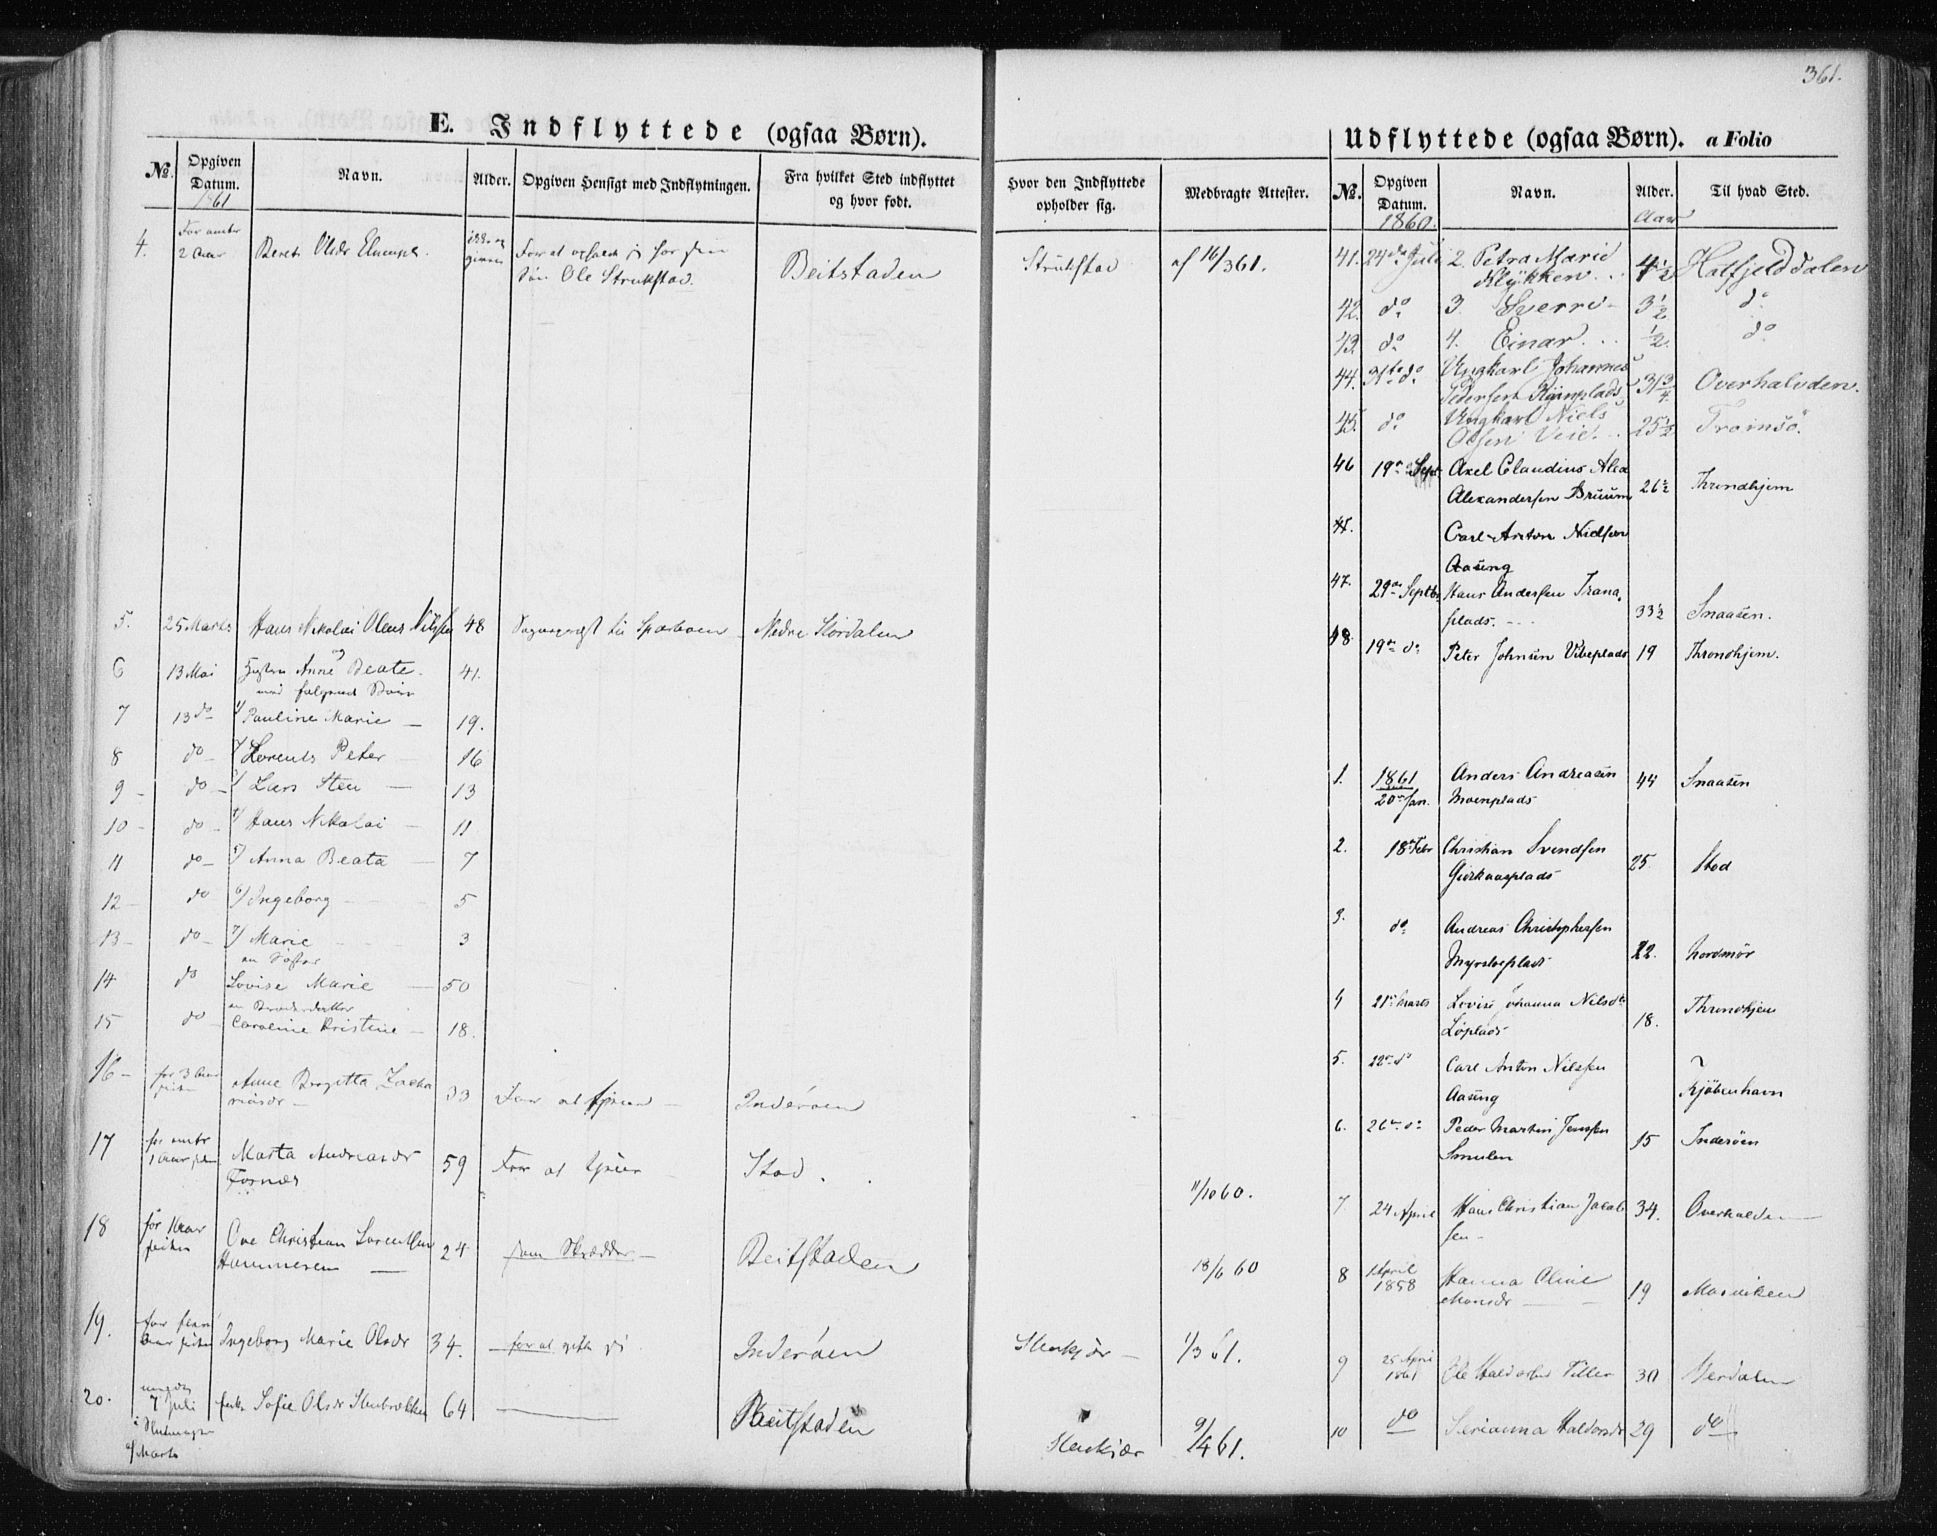 361.
E. Indflyttede (ogsaa Børn).
No. Opgiven Datum. Navn. Alder. Opgiven Hensigt med Indflytningen. Fra hvilket Sted indflyttet og hvor født. Hvor den Indflyttede opholder sig. Medbragte Attester.
1861
4. For omtr 2 Aar Beret Olsdr for sin Søn Ole Strukstad. Beitstaden Strukstad af 16/3 61.
5. 25 Marts Hans Nikolai Olaus 48 til Sparboen Nedre Stordalen
6 13 Mai Anne Beate 41.
med følgende Børn
7 13 do 1/ Pauline Marie — 19.
8 do 2/ Lorents Peter — 16
9 - do - 3/ Lars Sten — 13
10 - do - 4/ Hans Nikolai — 11
11 do - 5/ Anna Beata — 7
12 - do 6/ Ingeborg 5
13 - do - 7/ Marie 3
en Søster
14 do Lovise Marie — 50
en Broderdatter
15 do Caroline Kristine — 18.
16 - for 3 Aar siden Anne Birgitta 33 For at tjene — Inderøen
17 for omtr 1 Aar siden Marta Andreasdr Fornæs 59 For at tjene Stod.
11/10 60.
18 for 1 Aar siden Ove Christian Lorentsen Hammerem — 24 som Skrædder — Beitstaden
18/6 60
19. for flere Aar siden Ingeborg Marie Olsdr 34. for at gifte sig Inderøen Stenkjær — 1/3 61.
20. 7 Juli Sofie Olsdr 64 Beitstaden Stenkjær 9/4 61.
Marts
Udflyttede (ogsaa Børn). a Folio
No. Opgiven Datum. Navn. Alder. Til hvad Sted.
1860. Aar
41. 24de Juli 2. Petra Marie Klykken 4 1/2 Hatfjelddalen
42. do 3. Sverre - 3 1/2 do
43. do 4. Einar 1/2. do
44. 31te do Ungkarl Johannes Pedersen 31 3/4 Overhalvden.
45. do Ungkarl Niels Olsen Veie 25 1/2 Tromsö.
46 19de Sept Axel Claudius Alex Alexandersen Bruum 26 1/2 Throndhjem
Carl Anton Nielsen Aasung
47. 29de Septbr Hans Andersen Tranaplads. 33 1/2 Snaasen.
48 19de do Peter Johnsen Vibeplads 19 Throndhjem.
1. 1861 20de Jan. Anders Andreasen Moenplads 44 Snaasen
2. 18de Febr Christian Svendsen 25. Stod
3. do Andreas Christophersen 22. Nordmør
4 21de Marts Lovise Johanna Nilsdr Løplads 18. Throndhjem
5. 22de do Carl Anton Nilssen Aasung Kjøbenhavn
6. 26de do Peder Martin Jenssen Smulen 15 Inderøen
7. 24 April Hans Christian Jacobsen - 34. Overhalden
8 April 1858 Hanna Oline Monsdr 19 Mosviken
9 25 April 1861 Ole Haldorsen Tiller 30 Verdalen
10 do Serianna Haldorsdr 29 do